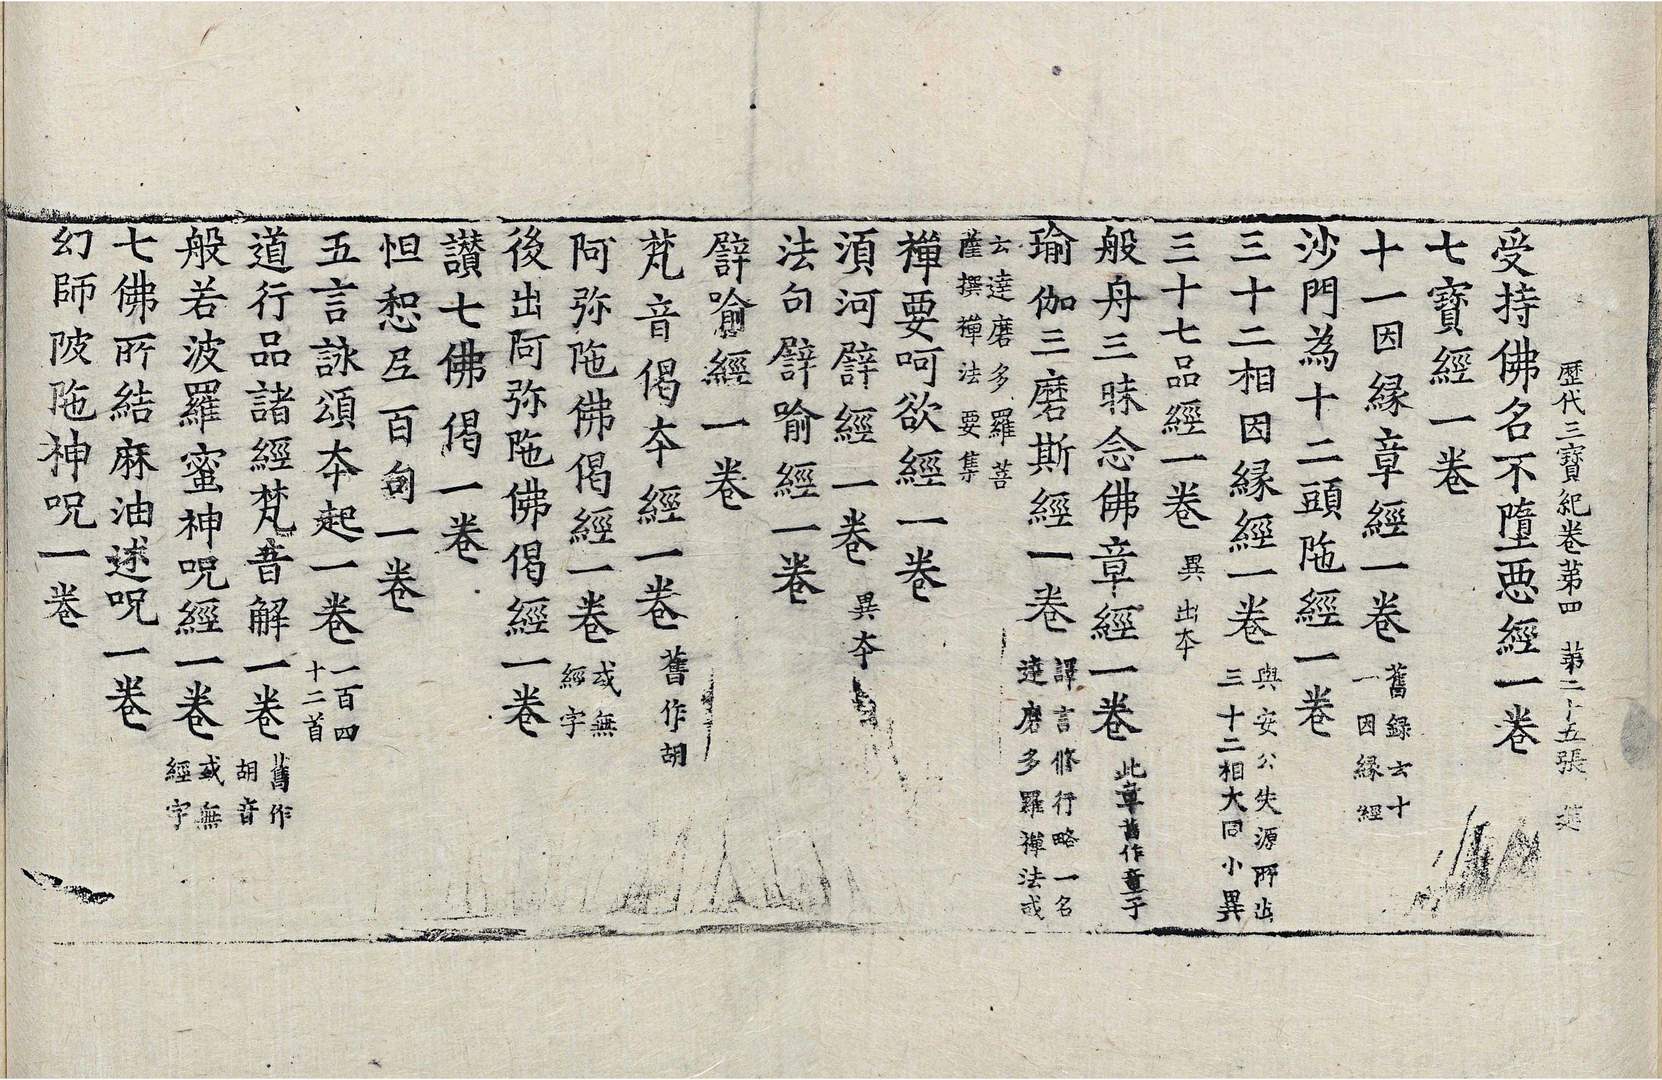 歷代三寶紀卷苐四 苐二十五張
受持佛名不墮惡經一卷
七寶經一卷
十一因縁章經一卷 舊録云十一因縁經
沙門為十二頭陁經一卷
三十二相因縁經一卷 與安公失源所出三十二相大同小異
三十七品經一卷 異出夲
般舟三昧念佛章經一卷 此章舊作童子
瑜伽三磨斯經一卷 譯言修行略一名達磨多羅禪法或
云達磨多羅菩薩撰禪法要集
禪要呵欲經一卷
湏河譬經一卷 異夲
法句譬喻經一卷
譬喻經一卷
梵音偈夲經一卷 舊作胡
阿弥陁佛偈經一卷 或無經字
後出阿弥陁佛偈經一卷
讃七佛偈一卷
怛惒尼百句一卷
五言詠頌夲起一卷 一百四十二首
道行品諸經梵音解一卷 舊作胡音
般若波羅蜜神呪經一卷 或無經字
七佛所結麻油述呪一卷
幻師陂陁神呪一卷